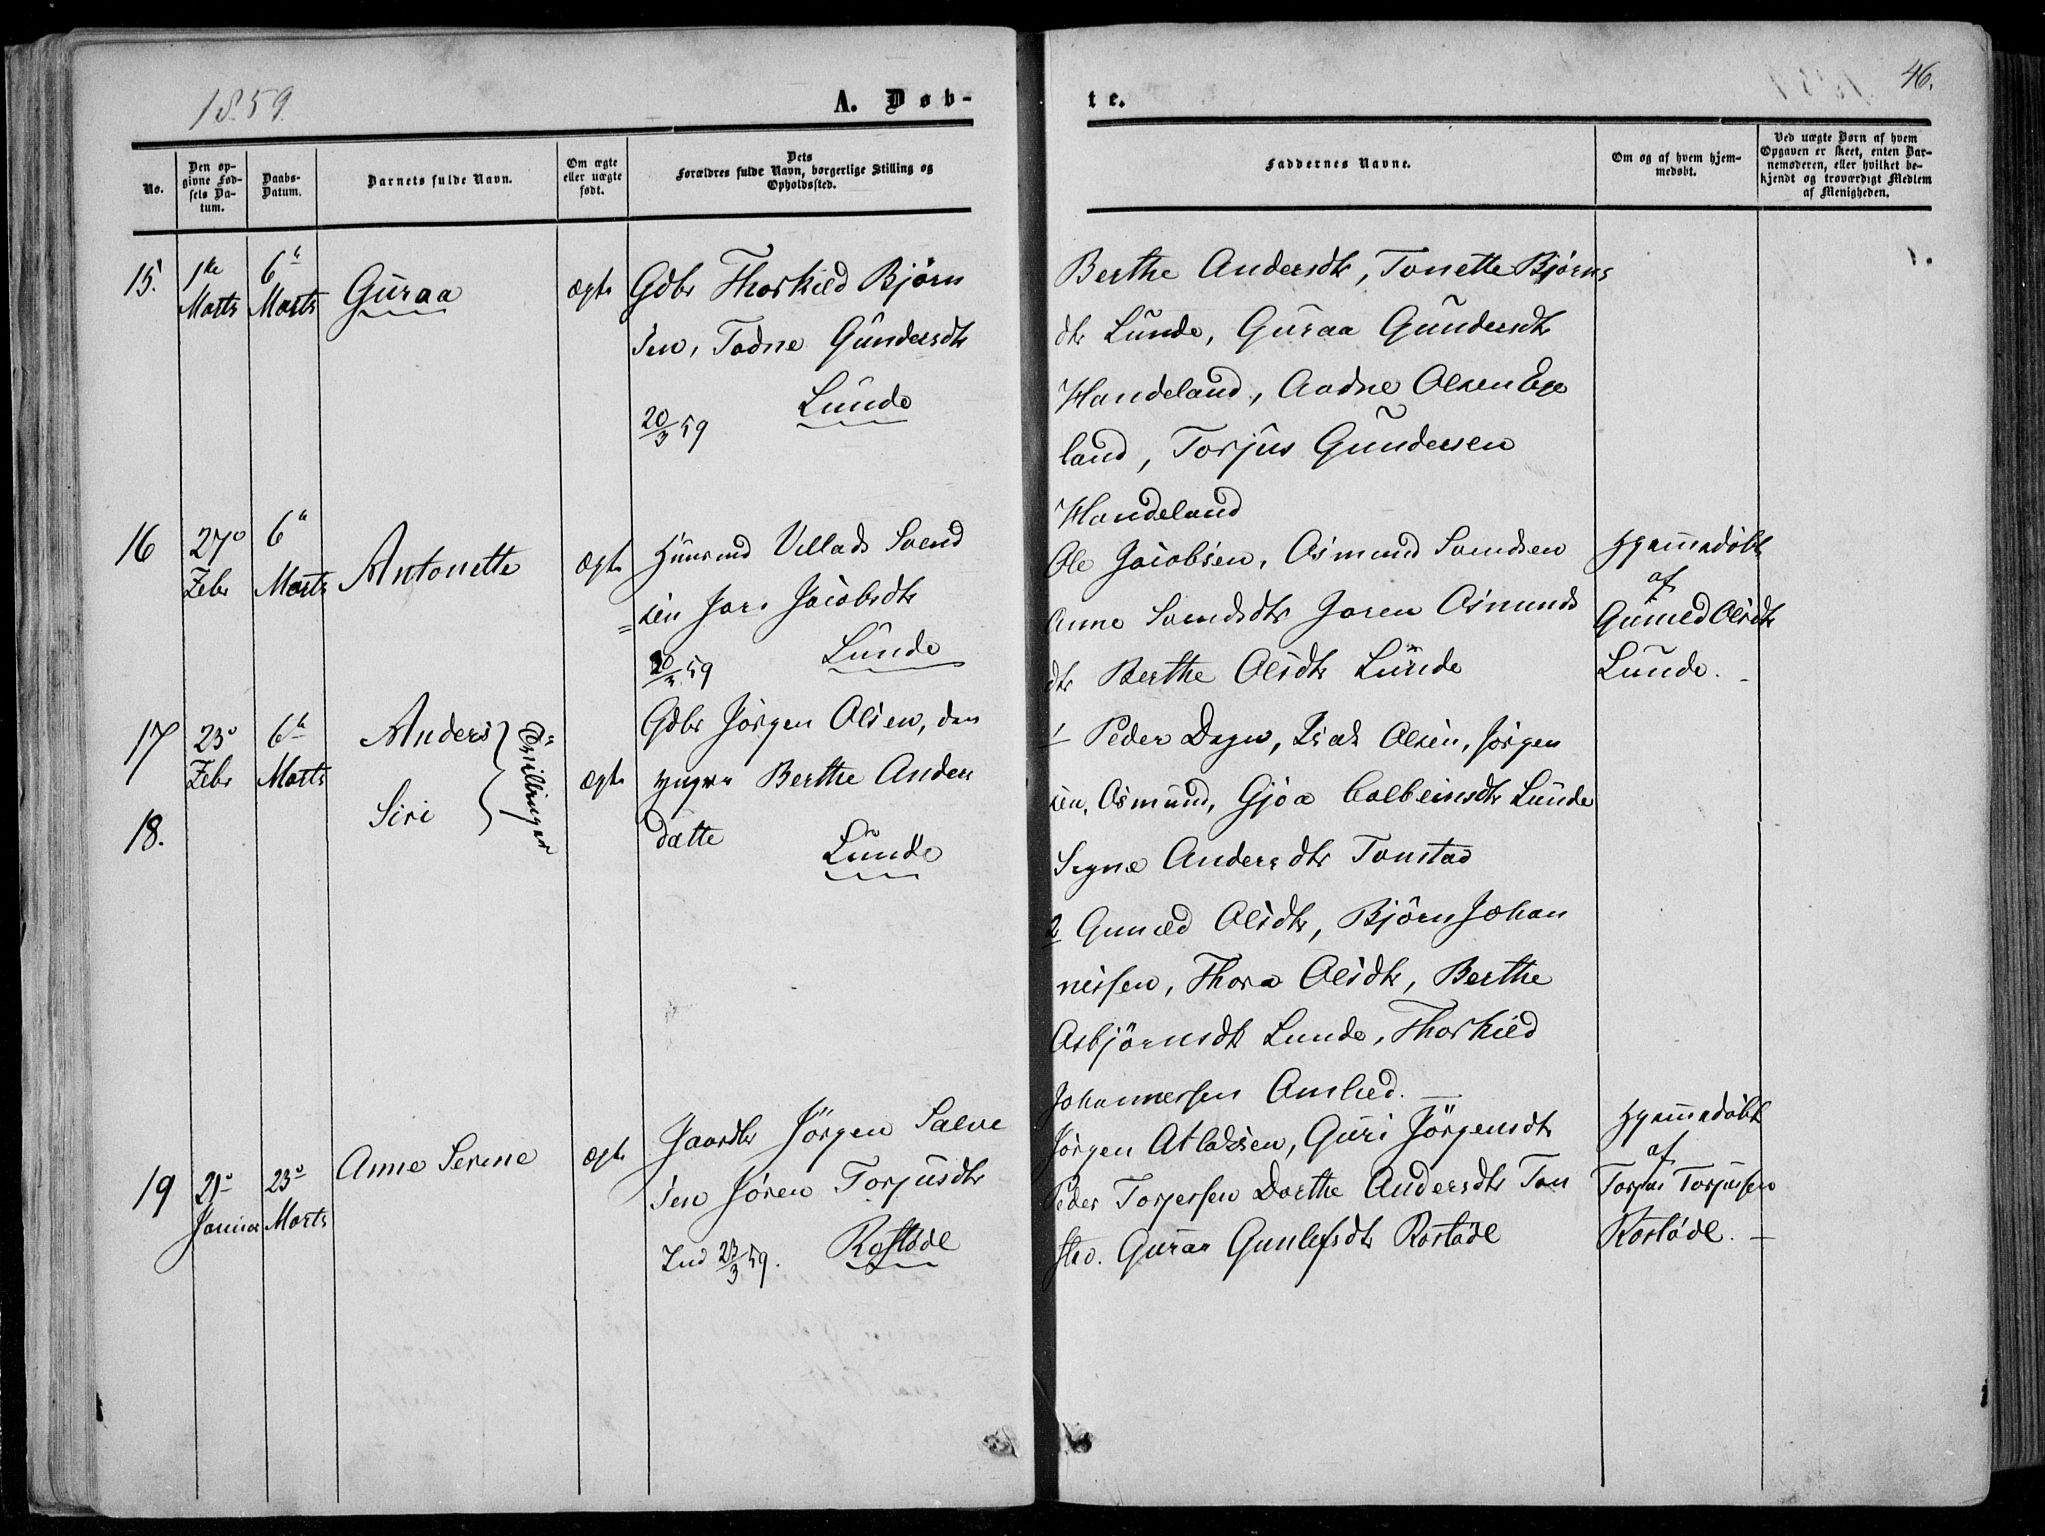 1859.
A. Døb-
te.
46.
No.
Den op-
givne Fød-
sels Da-
tum.
Daabs-
Datum.
Barnets fulde Navn.
Om ægte
eller uægte
født.
Dets
Forældres fulde Navn, borgerlige Stilling og
Opholdssted.
Faddernes Navne.
Om og af hvem hjem-
medøbt.
Ved uægte Børn af hvem
Opgaven er skeet, enten Bar-
nemoderen, eller hvilket be-
kjendt og troværdigt Medlem
af Menigheden.
15.
1ste
Marts
6te
Marts
Guraa
ægte
Gdbr Thorkild Bjørn
sen, Todne Gundersdtr
Lunde
20/3 59
Berthe Andersdtr, Tonette Bjørns
dtr Lunde, Guraa Gundersdtr
Handeland, Aadne Olsen Ege
land, Torjus Gundersen
Handeland
16
27de
Febr
6te
Marts
Antonette
ægte
Huusmd Villads Svend
sen Jori Jacobsdtr
Lunde
20/3 59
Ole Jacobsen, Osmund Svendsen
Anne Svendsdtr Joren Osmunds
dtr Berthe Olsdtr Lunde
Hjemmedøbt
af
Guneld Olsdtr
Lunde.
17
18.
23de
Febr
6te
Marts
Anders
Siri
Tvillinger
ægte
Gdbr Jørgen Olsen, den
yngre Berthe Anders
datte
Lunde
1 Peder Dagu, Isak Olsen, Jørgen
sen, Osmund, Gjøa Colbeinsdtr Lunde
Signe Andersdtr Tonstad
2 Guneld Olsdtr, Bjørn Johan
nissen, Thora Olsdtr, Berthe
Asbjørnsdtr Lunde, Thorkild
Johannessen Omlied.
19
21de
Januar
23de
Marts
Anne Serine
ægte
Jørgen Salve
sen Jøren Torjusdtr
Rostøde
Ind 23/3 59.
Jørgen Atlaksen, Guri Jørgensdtr
Peder Torjersen Dorthe Andersdtr Ton
stad. Guraa Gunlefsdtr Rostøde
Hjemmedøbt
af
Torjus Torjussen
Rostøde.